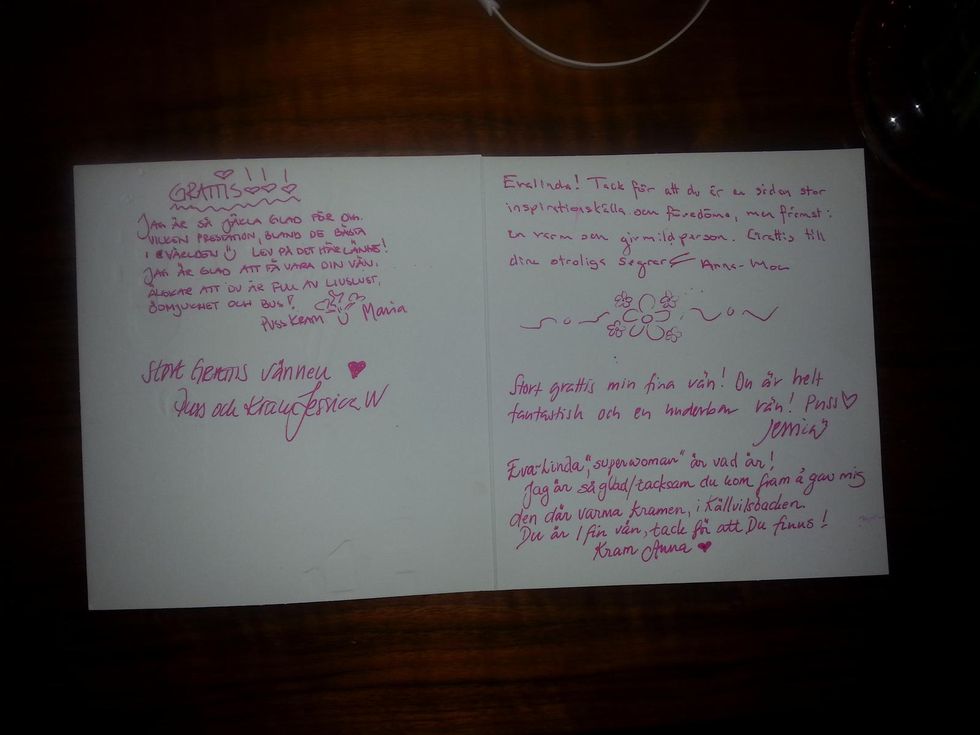 GRATTIS
JAG ÄR SÅ JÄKLA GLAD FÖR DIG.
VILKEN PRESTATION, BLAND DE BÄSTA
I VÄRLDEN LEV PÅ DET HÄR LÄNGE!
JAG ÄR GLAD ATT FÅ VARA DIN VÄN.
ÄLSKAR ATT DU ÄR FULL AV LIVSLUST,
ÖDMJUKHET OCH BUS!
PUSS KRAM Maria
Stort Grattis vännen
Puss och Kram Jessica W
Evalinda! Tack för att du är en sådan stor
inspirationskälla och föredöme, men främst:
en varm och givmild person. Grattis till
dina otroliga segrar Anna-Moa
Stort grattis min fina vän! Du är helt
fantastisk och en underbar vän! Puss
Eva-Linda, "superwoman" är vad är!
Jag är så glad/tacksam du kom fram å gav mig
den där varma kramen, i Källviksbacken.
Du är 1 fin vän, tack för att Du finns!
Kram Anna